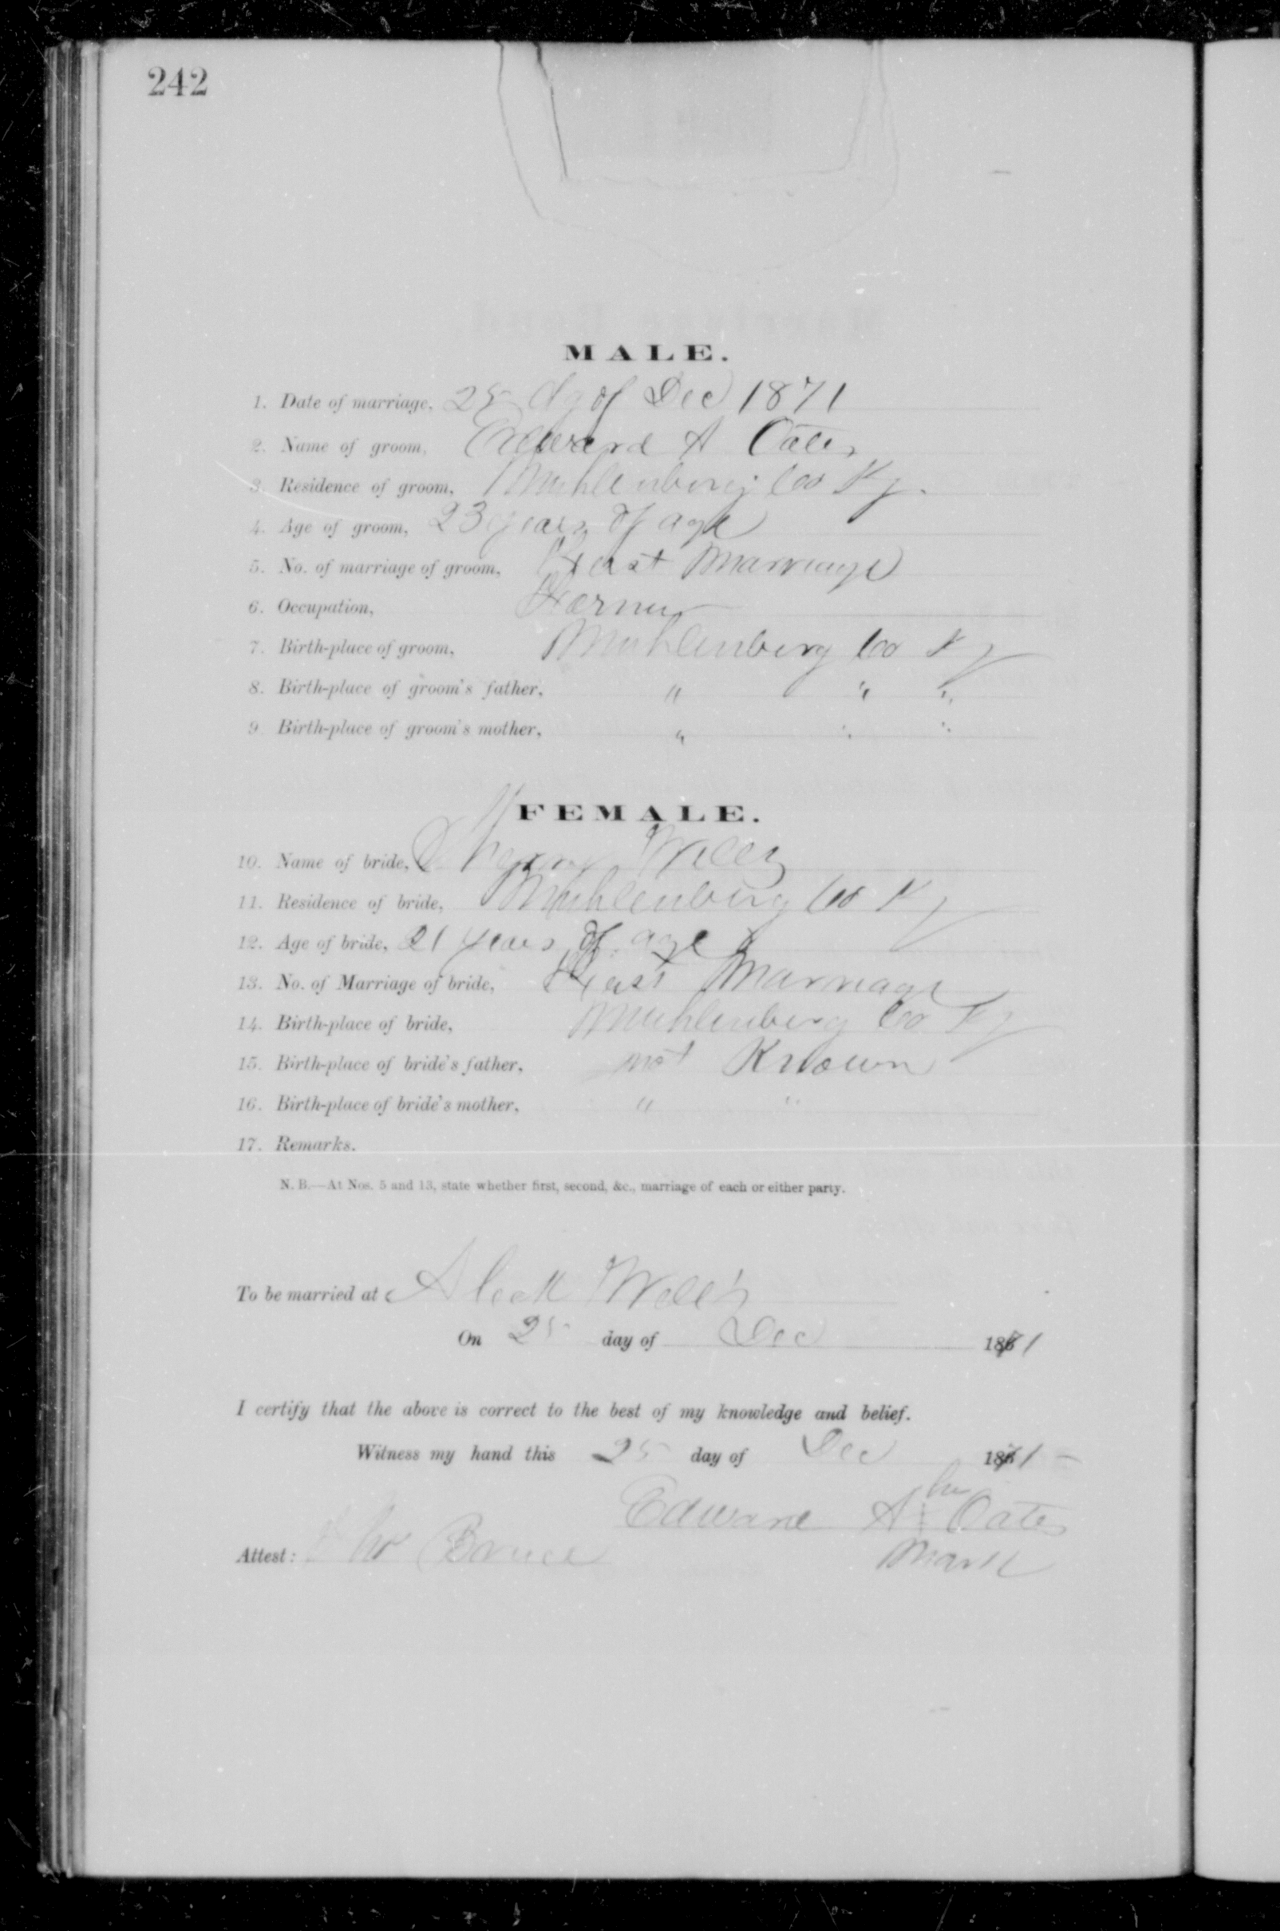 242
MALE.
1. Date of marriage, 25 dy of Dec 1871
2. Name of groom, Edward A Oates
3. Residence of groom, Muhlenberg Co Ky.
4. Age of groom, 23 years of age
5. No. of marriage of groom, First Marriage
6. Occupation, Farmer
7. Birth-place of groom, Muhlenberg Co Ky
8. Birth-place of groom's father, " " "
9. Birth-place of groom's mother, " " "
FEMALE.
10. Name of bride,
11. Residence of bride, Muhlenberg Co Ky
12. Age of bride, 21 years of age
13. No. of Marriage of bride, First Marriage
14. Birth-place of bride, Muhlenberg Co Ky
15. Birth-place of bride's father, not Known
16. Birth-place of bride's mother, " "
17. Remarks.
N. B.—At Nos. 5 and 13, state whether first, second, &c., marriage of each or either party.
To be married at
On 25 day of Dec 1871
I certify that the above is correct to the best of my knowledge and belief.
Witness my hand this 25 day of Dec 1871
his
Edward A + Oates
Attest: Bruce Mark